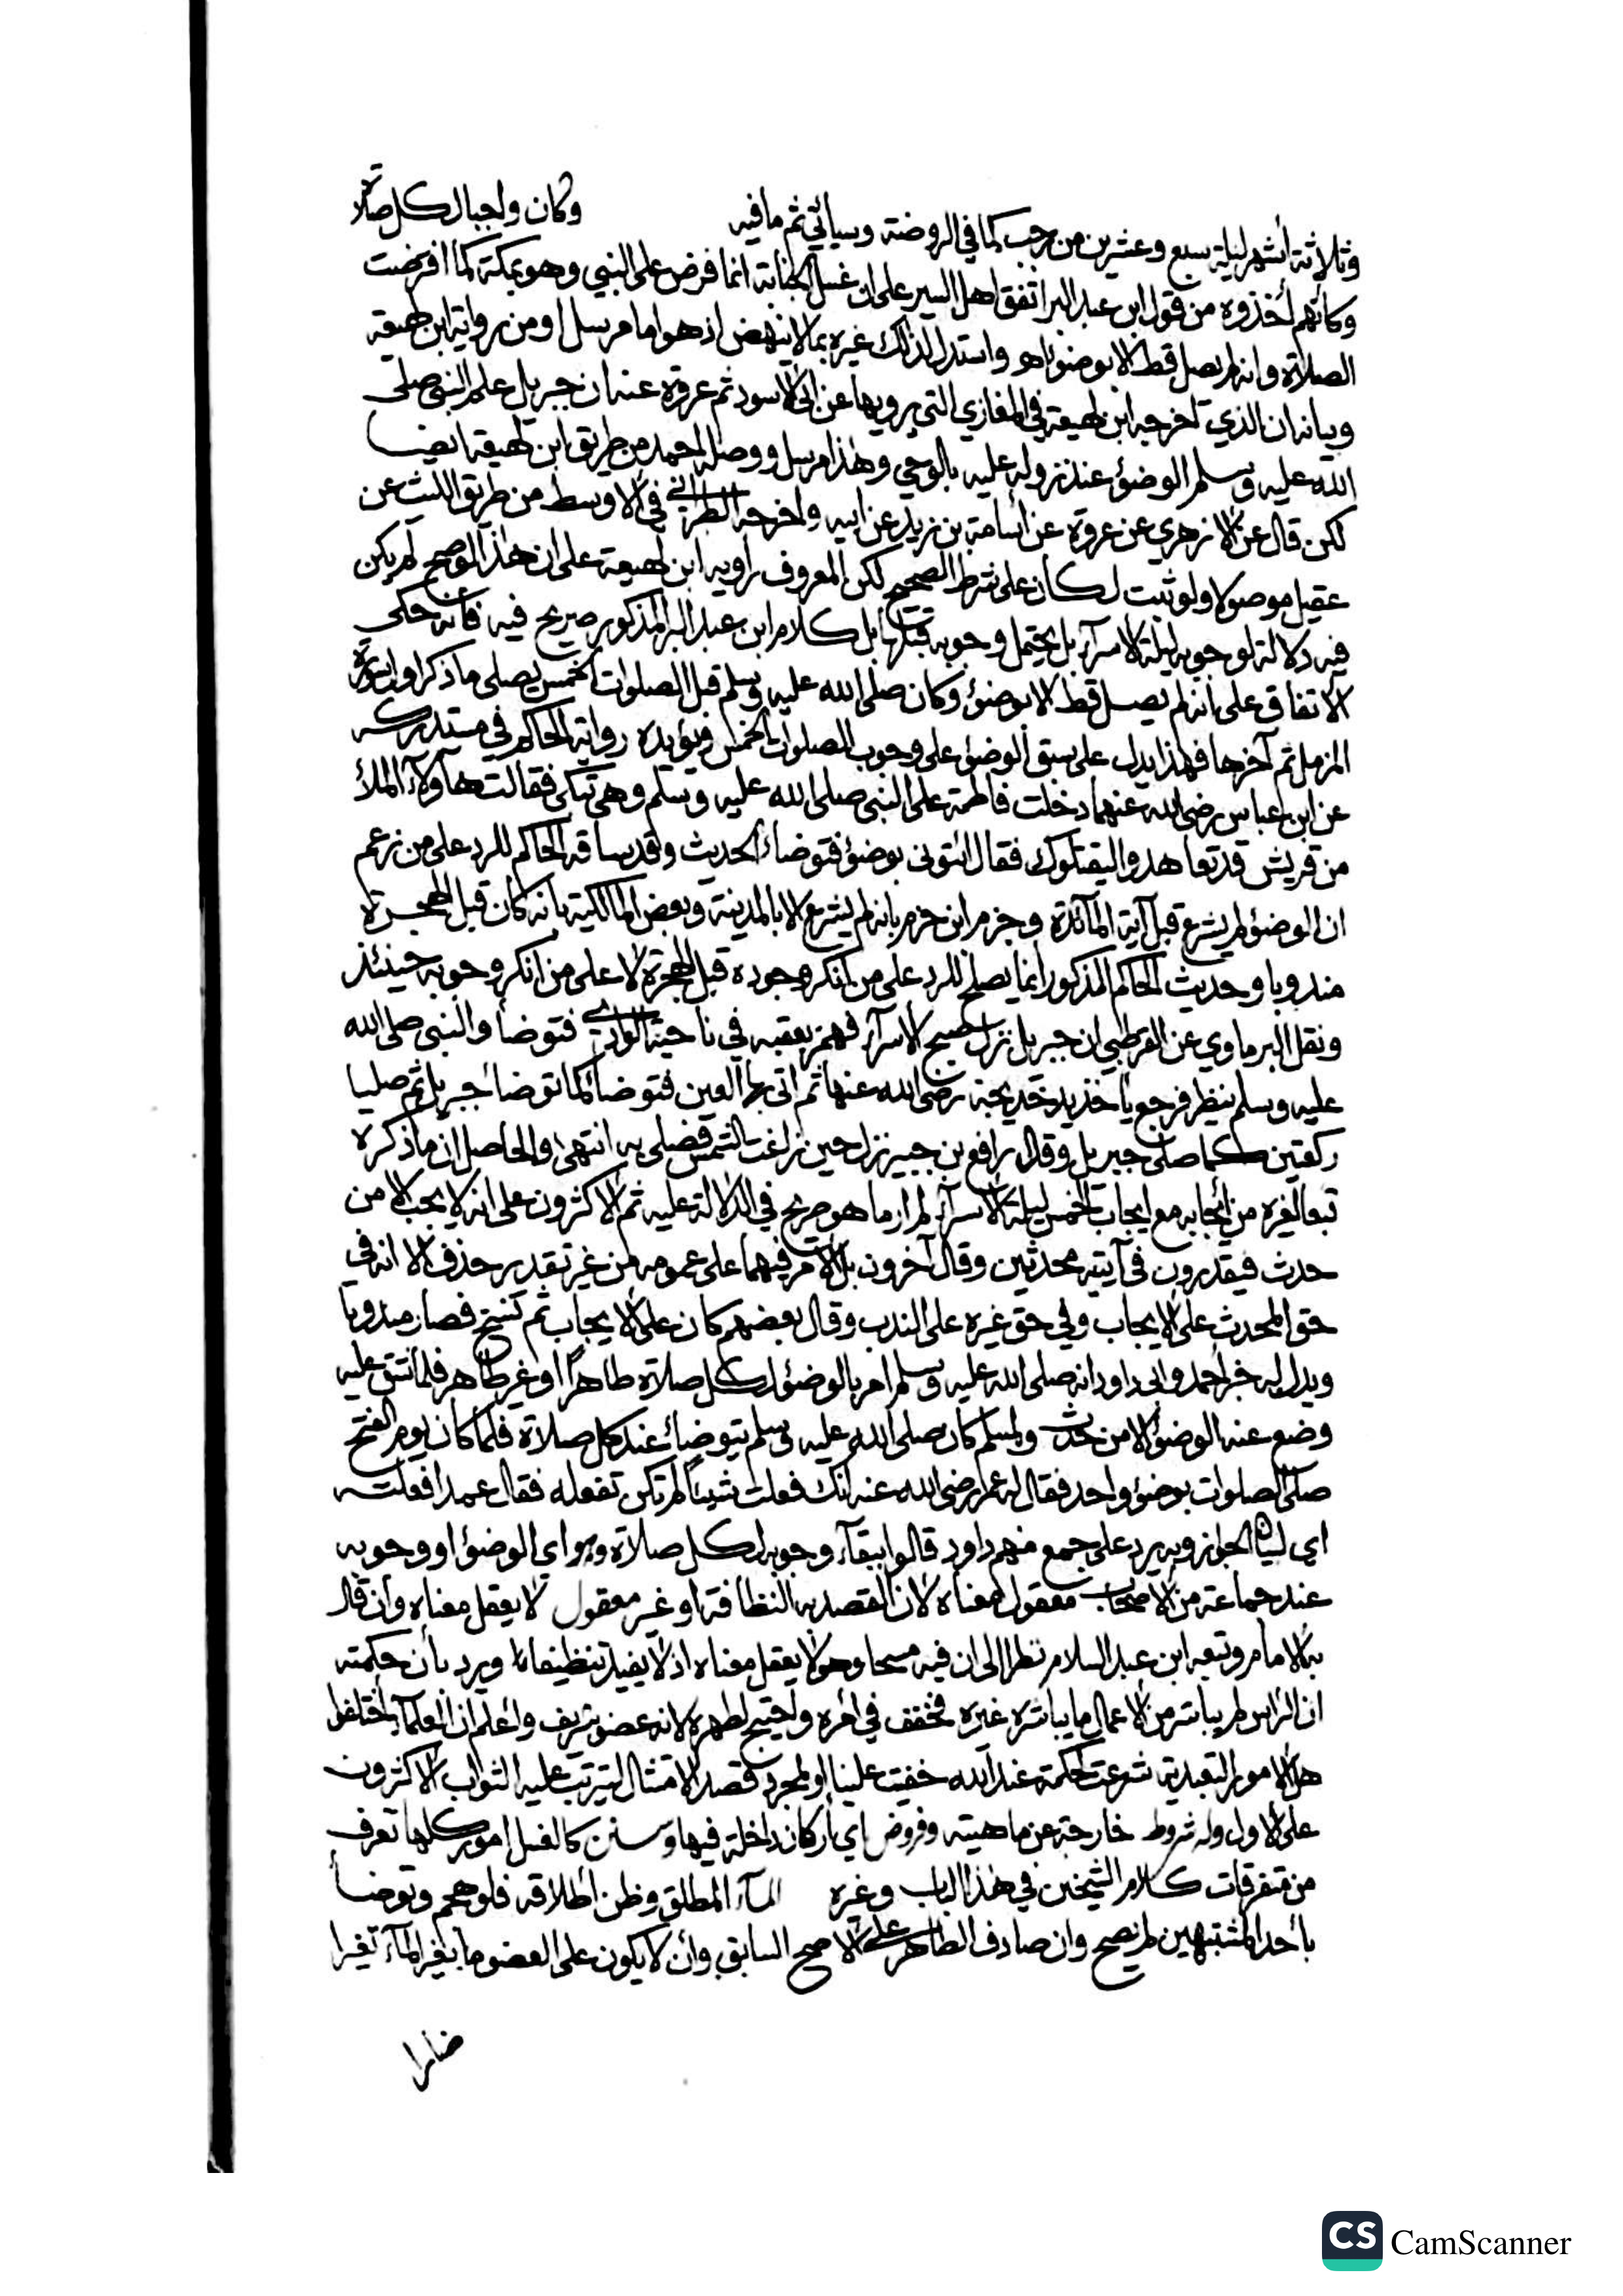 وثلاثة أشهر ليلة سبع وعشرين من رجب كما في الروضة وسيأتي ثم ما فيه وكان واجبا لكل صلاة
وكأنهم أخذوه من قول ابن عبد البر اتفق اهل السير على ان غسل الجنابة انما فرض على النبي وهو بمكة كما افترضت
الصلاة وانه لم يصل قط الا بوضوء اهو واستدل لذلك غيره بما لا ينهض اذ هو اما مرسل او من رواية ابن لهيعة
وبيانه ان الذي اخرجه ابن لهيعة في المغازي التي يرويها عن ابي الاسود ثم عروة عنه ان جبريل علم النبي صلى
الله عليه وسلم الوضوء عند نزوله عليه بالوحي وهذا مرسل ووصله احمد من طريق ابن لهيعة ايضا
لكن قال عن الزهري عن عروة عن أسامة بن زيد عن ابيه واخرجه الطبراني في الاوسط من طريق الليث عن
عقيل موصولا ولو ثبت لكان على شرط الصحيح لكن المعروف راويه ابن لهيعة على ان هذا لو صح لم يكن
فيه دلالة لوجوبه ليلة الاسراء بل يحتمل وجوبه قبلها بل كلام ابن عبد البر المذكور صريح فيه فانه حكى
الاتفاق على انه لم يصل قط الا بوضوء وكان صلى الله عليه وسلم قبل الصلوات الخمس يصلي ما ذكر اول سورة
المزمل ثم آخرها فهذا يدل على سبق الوضوء على وجوب الصلوات الخمس ويؤيده رواية الحاكم في مستدركه
عن ابن عباس رضي الله عنهما دخلت فاطمة على النبي صلى الله عليه وسلم وهي تبكي فقالت هاولآء الملأ
من قريش قد تعاهدوا ليقتلوك فقال ائتوني بوضوء فتوضاء الحديث وقد ساقه الحاكم للرد على من زعم
ان الوضوء لم يشرع قبل آية المآئدة وجزم ابن حزم بانه لم يشرع الا بالمدينة وبعض المالكية بانه كان قبل الهجرة
مندوبا وحديث الحاكم المذكور انما يصلح للرد على من أنكر وجوده قبل الهجرة لا على من انكر وجوبه حينئذ
ونقل البرماوي عن القرطبي ان جبريل نزل صبح الاسراء فهمز بعقبه في ناحية الوادي فتوضأ والنبي صلى الله
عليه وسلم ينظر فرجع يأخذ بيد خديجة رضي الله عنها ثم اتى بها العين فتوضأ كما توضأ جبريل ثم صليا
ركعتين كما صلى جبريل وقال رافع بن جبير نزل حين زاغت الشمس فصلى به انتهى والحاصل ان ما ذكره
تبعا لغيره من إيجابه مع ايجاب الخمس ليلة الاسراء لم ار ما هو صريح في الدلالة عليه ثم الاكثرون على انه لا يجب الا من
حدث فيقدرون في آيته محدثين وقال آخرون بل الامر فيهما على عمومه من غير تقدير حذف الا انه في
حق المحدث على الايجاب وفي حق غيره على الندب وقال بعضهم كان على الايجاب ثم نسخ فصار مندوبا
ويدل له خبر احمد وابي داود انه صلى الله عليه وسلم امر بالوضوء لكل صلاة طاهرا او غير طاهر فلما شق عليه
وضع عنه الوضوء الا من حدث ولمسلم كان صلى الله عليه وسلم يتوضاء عند كل صلاة فلما كان يوم الفتح
صلى الصلوات بوضوء واحد فقال له عمر رضي الله عنه انك فعلت شيئا لم تكن تفعله فقال عمدا فعلته
اي لبيان الجواز وبه يرد على جمع منهم داود قالوا ببقآء وجوبه لكل صلاة وهو اي الوضوء او وجوبه
عند جماعة من الاصحاب معقول معناه لان القصد به النظافة او غير معقول لا يعقل معناه وان قال
به الامام وتبعه ابن عبد السلام نظرا الى ان فيه مسحا وهو لا يعقل معناه اذ لا يفيد تنظيفا ويرد بأن حكمته
ان الراس لم يباشر من الاعمال ما يباشره غيره فخفف في امره واحتيج لطهره لانه عضو شريف واعلم ان العلمآء اختلفوا
هل الامور التعبدية شرعت لحكمة عند الله خفيت علينا او لمجرد قصد الامتثال ليترتب عليه الثواب الاكثرون
على الاول وله شروط خارجة عن ماهيته وفروض اي أركان داخلة فيها وسنن كالغسل امور كلها تعرف
من متفرقات كلام الشيخين في هذا الباب وغيره المآء المطلق وظن اطلاقه فلو هجم وتوضأ
بأحد المشتبهين لم يصح وان صادف الطاهر على الاصح السابق وأن لا يكون على العضو ما يغير المآء تغيرا
ضارا
CS CamScanner